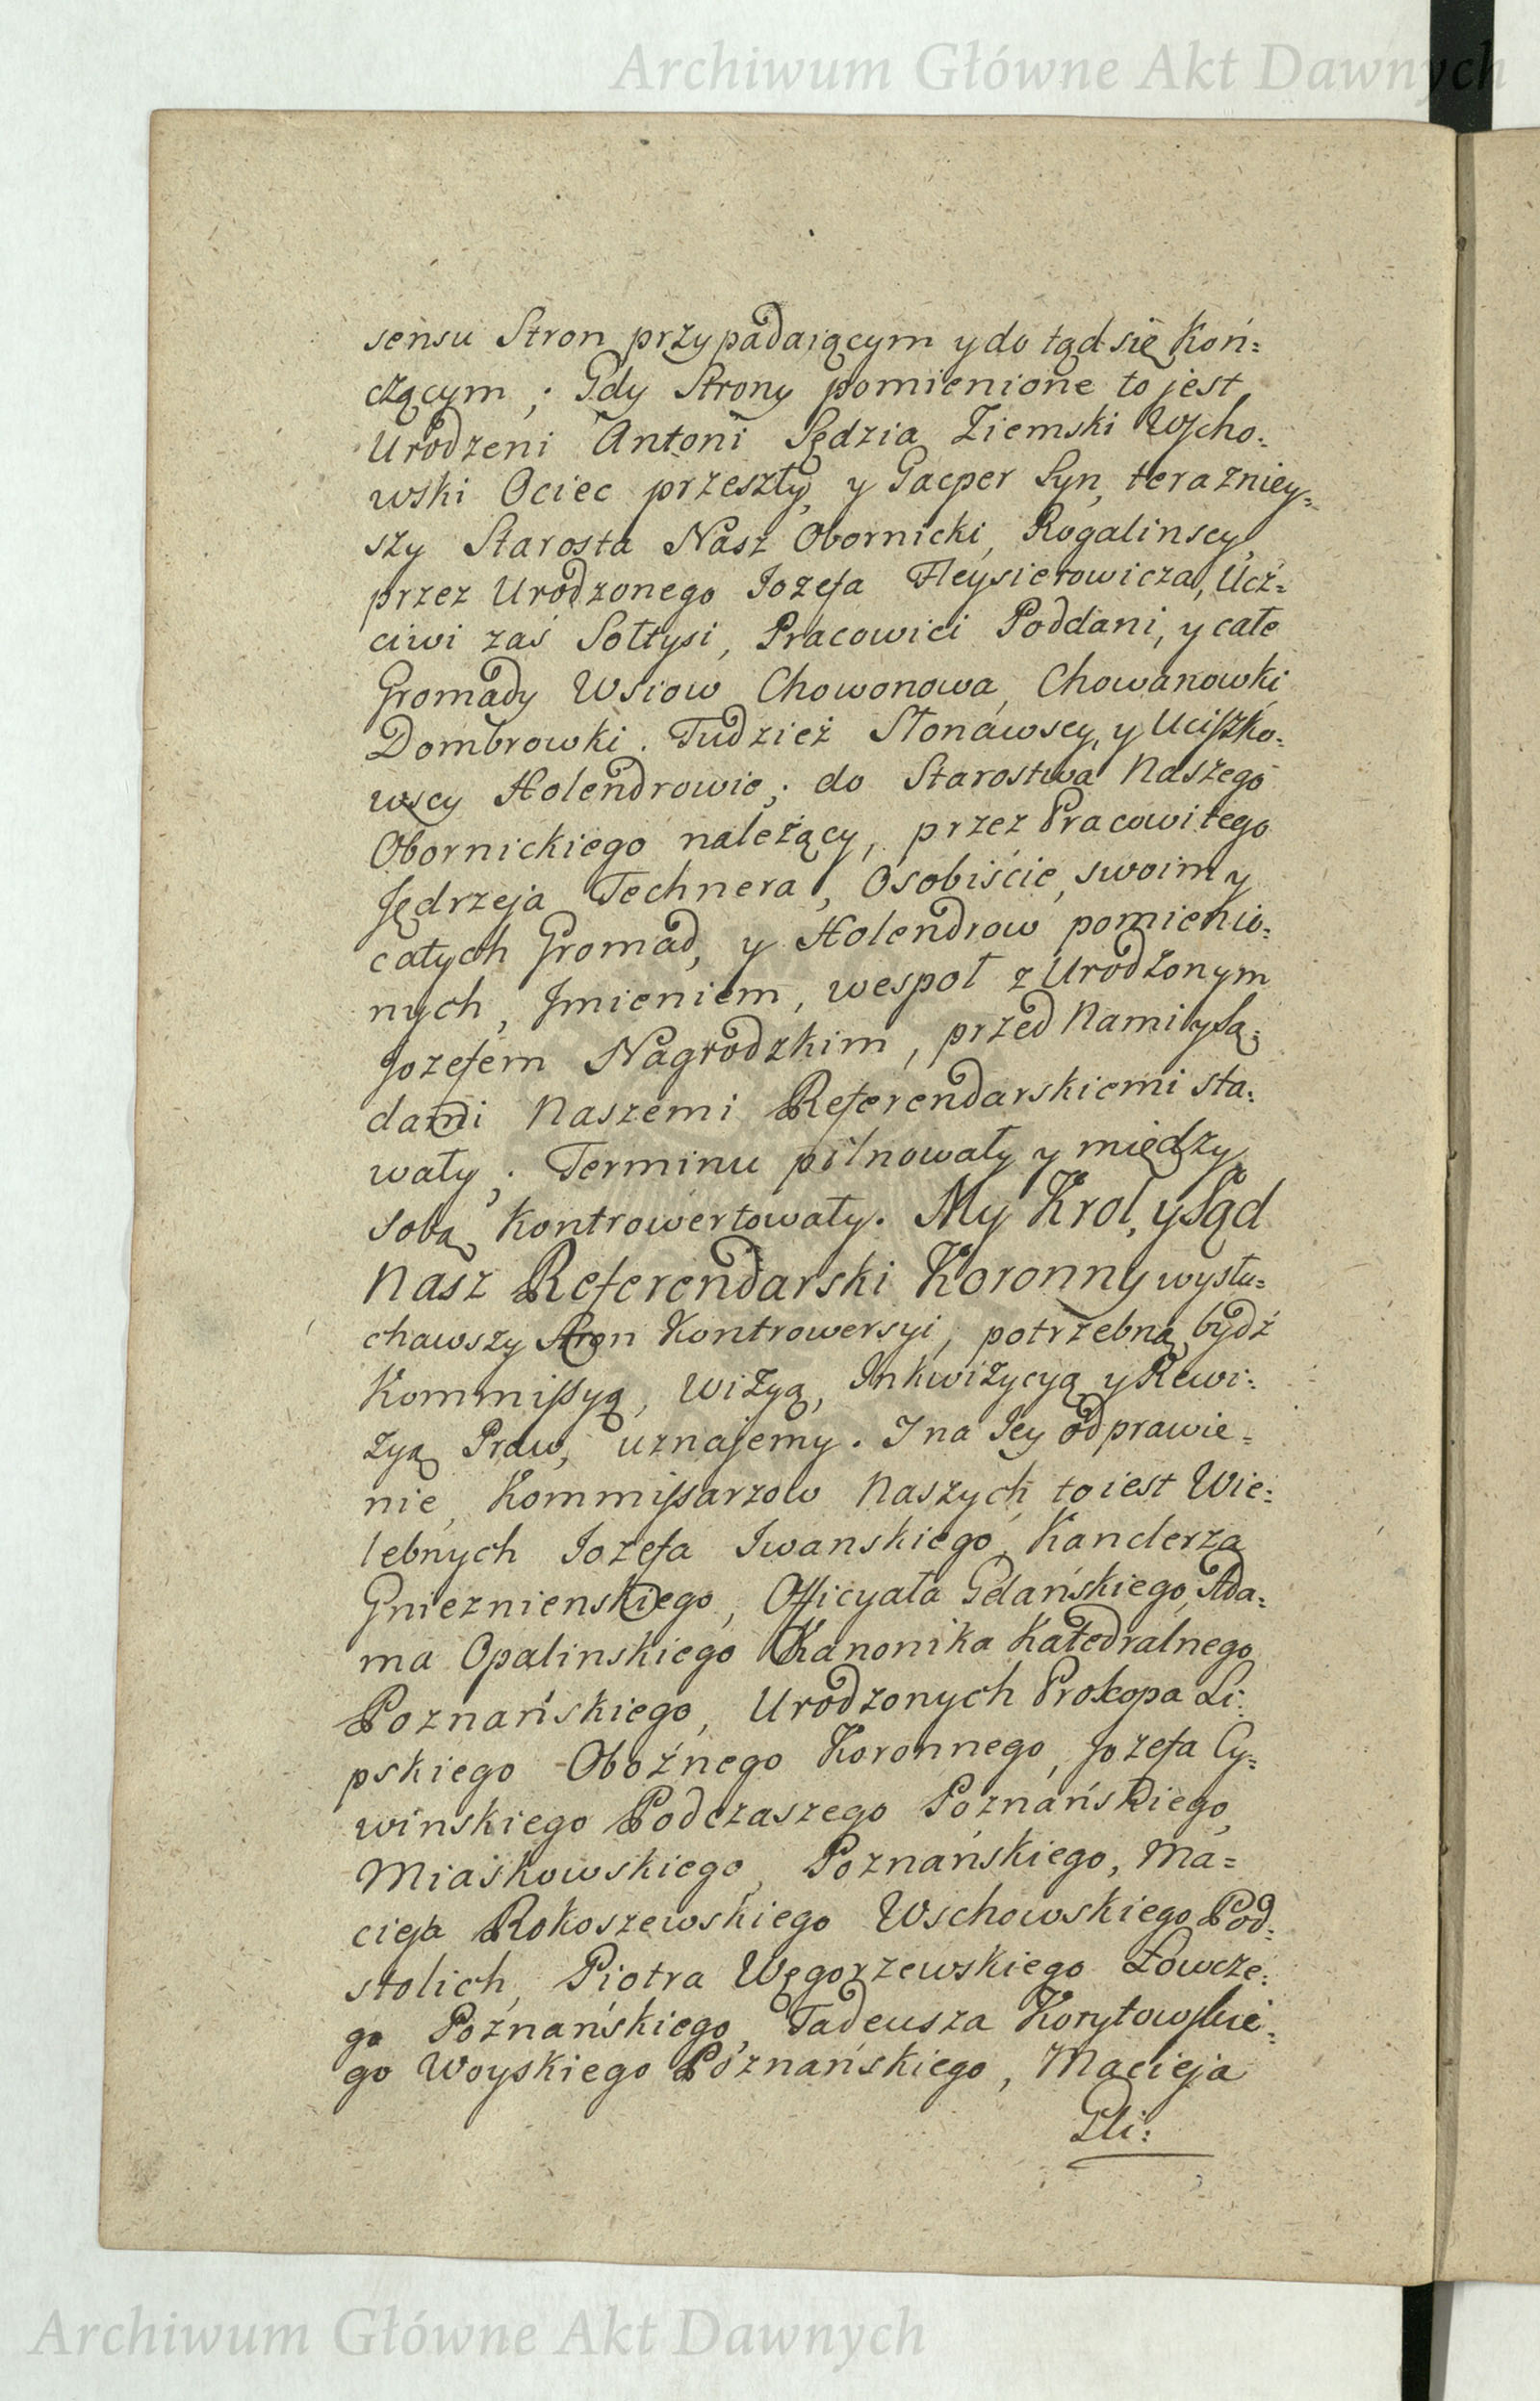 Archiwum Główne Akt Dawnych
sensu Stron przypadaiącym y do tąd się Koń=
czącym ; Gdy Strony pomienione to jest
Urodzeni Antoni Sędzia Ziemski Wscho=
wski Ociec przeszły, y Gacper Syn, terazniey=
szy Starosta Nasz Obornicki, Rogalinscy,
przez Urodzonego Iozefa Fleysierowicza, Ucz=
ciwi zaś Sołtysi, Pracowici Poddani, y całe
Gromady Wsiow Chowonowa, Chowanowki
Dombrowki. Tudzież Słonawscy, y Uciszko=
wscy Holendrowie; do Starostwa Naszego
Obornickiego należący, przez Pracowitego
Jędrzeja Technera, Osobiście, swoim y
całych Gromad, y Holendrow pomienio=
nych, Jmieniem, wespoł z Urodzonym
Jozefem Nagrodzkim, przed Nami y Są=
dami Naszemi Referendarskiemi sta=
wały; Terminu pilnowały y między
sobą Kontrowertowały. My Krol, y Sąd
Nasz Referendarski Koronny wysłu=
chawszy Stron Kontrowersyi, potrzebną bydź
Kommissyą, Wizyą, Inkwizycyą y Rewi=
zyą Praw, uznajemy. I na Jey odprawie=
nie, Kommissarzow Naszych, to iest Wie=
lebnych Iozefa Iwanskiego, Kanclerza
Gnieznienskiego, Officyała Gdańskiego, Ada=
ma Opalinskiego Kanonika Katedralnego
Poznańskiego, Urodzonych Prokopa Li=
pskiego Oboźnego Koronnego, Jozefa Cy=
winskiego Podczaszego Poznańskiego,
Miaskowskiego, Poznańskiego, Ma=
cieja Rokoszewskiego Wschowskiego Pod=
stolich, Piotra Węgorzewskiego Łowcze=
go Poznańskiego, Tadeusza Korytowskie=
go Woyskiego Poznańskiego, Macieja
Gli=
Archiwum Główne Akt Dawnych